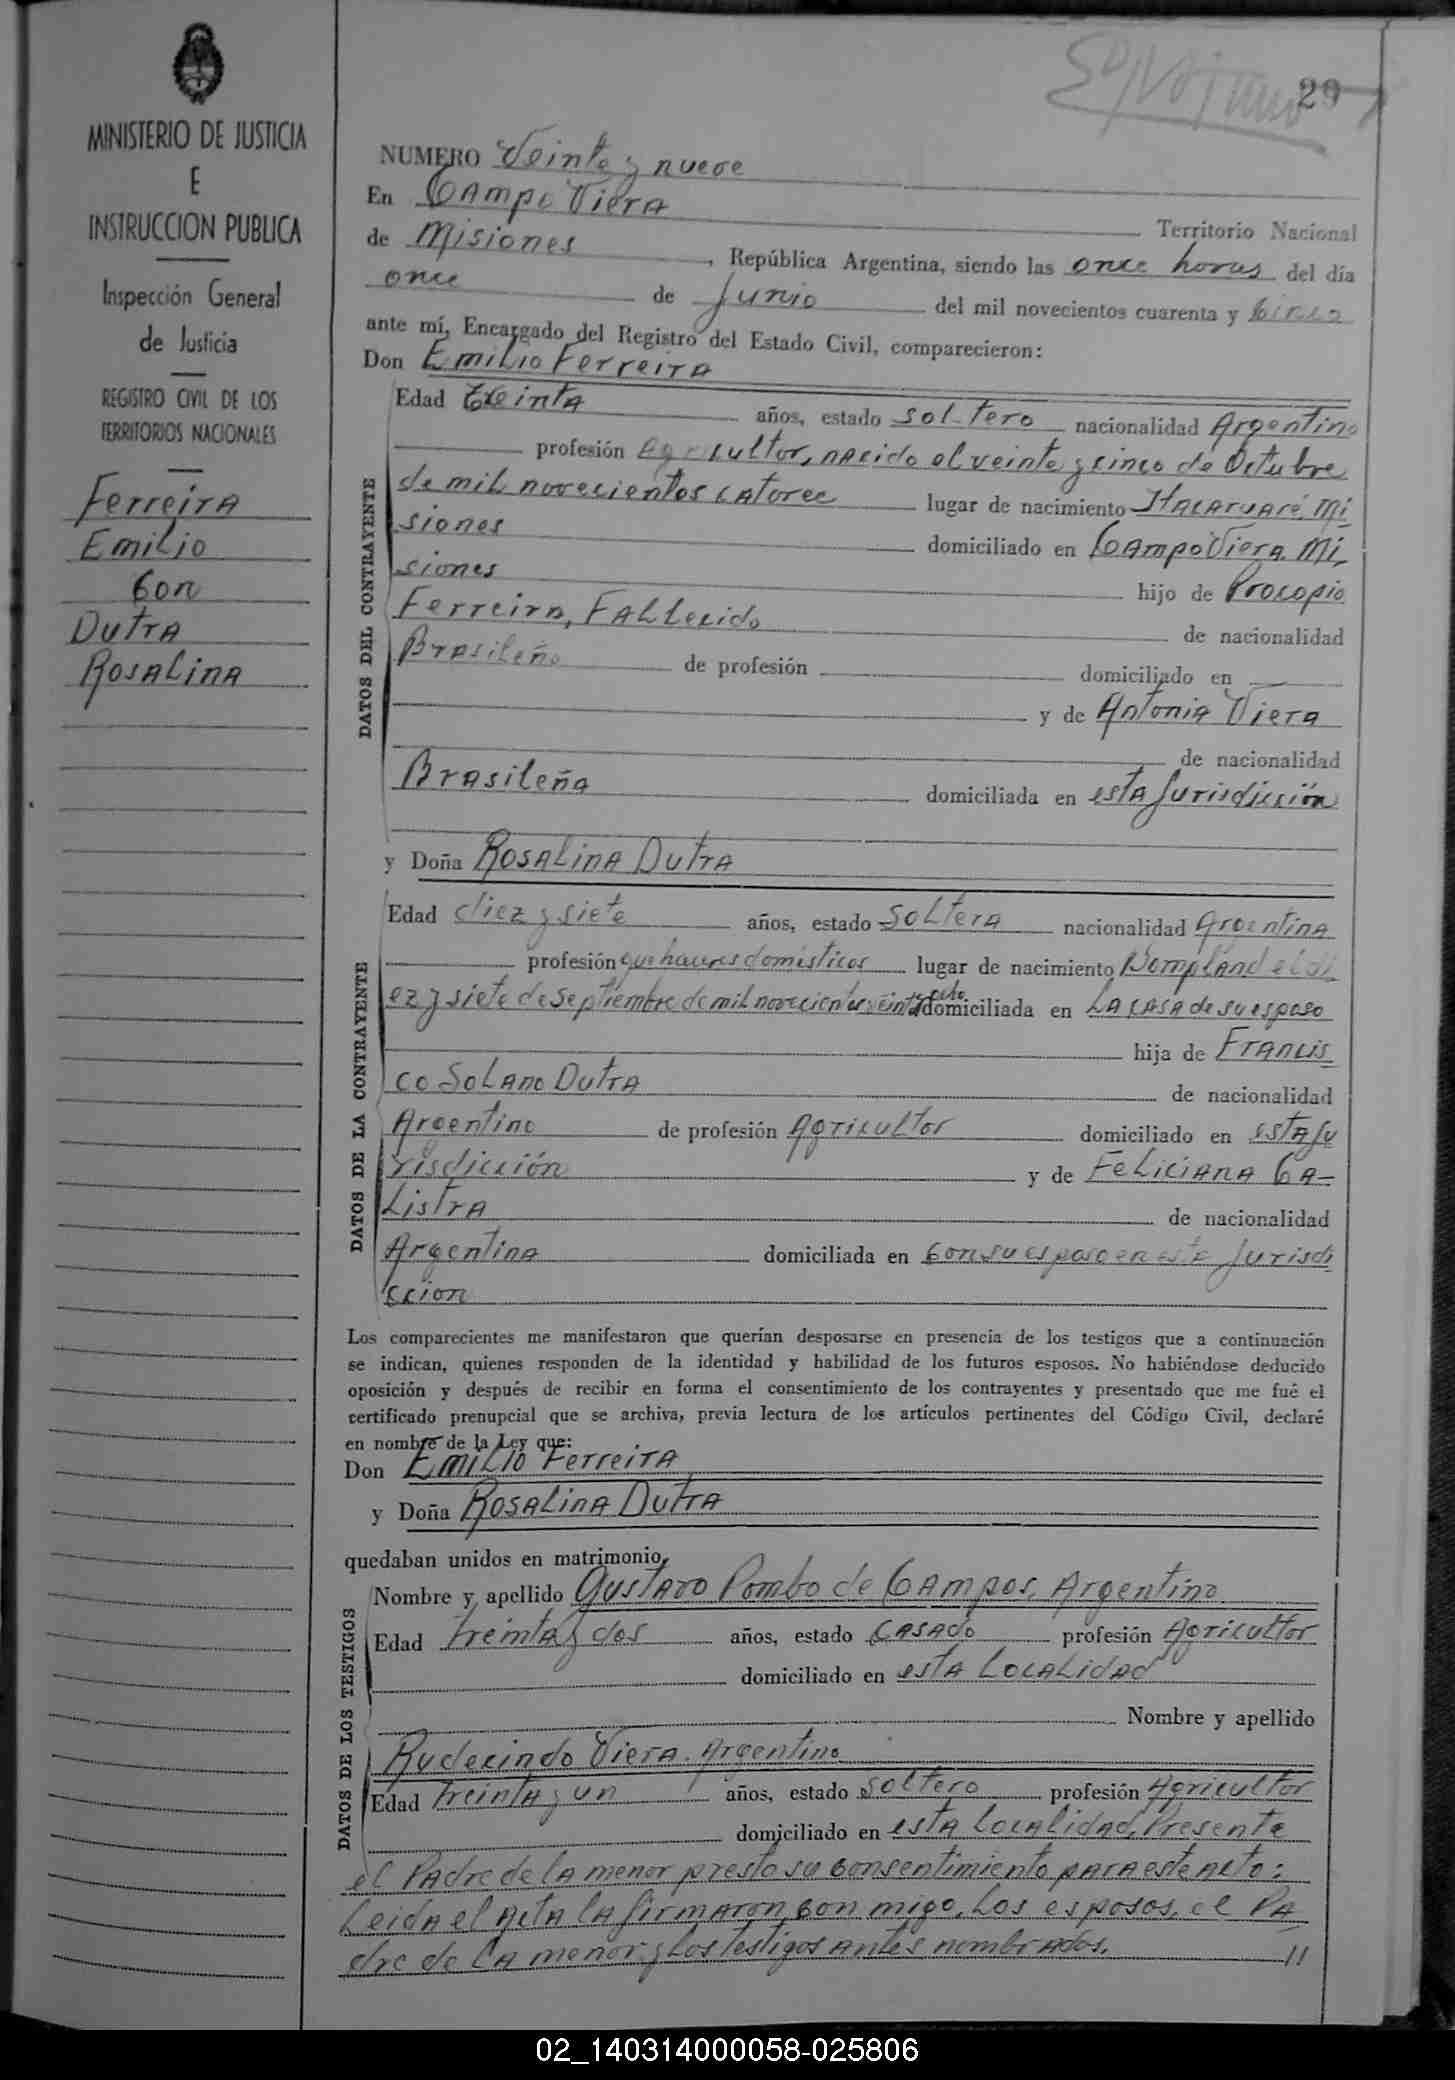 MINISTERIO DE JUSTICIA
E
INSTRUCCION PUBLICA
Inspección General
de Justicia
REGISTRO CIVIL DE LOS
TERRITORIOS NACIONALES
Ferreira
Emilio
Con
Dutra
Rosalina
29
NUMERO Veinte y nueve
En Campo Viera Territorio Nacional
de Misiones, República Argentina, siendo las once horas del día
once de Junio del mil novecientos cuarenta y cinco
ante mí, Encargado del Registro del Estado Civil, comparecieron:
Don Emilio Ferreira
DATOS DEL CONTRAYENTE
Edad treinta años, estado soltero nacionalidad Argentino
profesión Agricultor, nacido el veinte y cinco de Octubre
de mil novecientos catorce lugar de nacimiento Itacaruaré, Mi
siones domiciliado en Campo Viera. Mi,
siones hijo de Procopio
Ferreira, Fallecido de nacionalidad
Brasileño de profesión domiciliado en
y de Antonia Viera
de nacionalidad
Brasileña domiciliada en esta Jurisdicción
y Doña Rosalina Dutra
DATOS DE LA CONTRAYENTE
Edad diez y siete años, estado soltera nacionalidad Argentina
profesión quehaceres domésticos lugar de nacimiento Bompland el di
ez y siete de Septiembre de mil novecientos veinte y ocho domiciliada en la casa de su esposo
hija de Francis
co Solano Dutra de nacionalidad
Argentino de profesión Agricultor domiciliado en esta Ju
risdicción y de Feliciana Ca-
listra de nacionalidad
Argentina domiciliada en con su esposo en esta Jurisdi
ccion
Los comparecientes me manifestaron que querían desposarse en presencia de los testigos que a continuación
se indican, quienes responden de la identidad y habilidad de los futuros esposos. No habiéndose deducido
oposición y después de recibir en forma el consentimiento de los contrayentes y presentado que me fué el
certificado prenupcial que se archiva, previa lectura de los artículos pertinentes del Código Civil, declaré
en nombre de la Ley que:
Don Emilio Ferreira
y Doña Rosalina Dutra
quedaban unidos en matrimonio,
DATOS DE LOS TESTIGOS
Nombre y apellido Gustavo Pombo de Campos, Argentino
Edad treinta y dos años, estado casado profesión Agricultor
domiciliado en esta localidad
Nombre y apellido
Rudecindo Viera. Argentino
Edad treinta y un años, estado soltero profesión Agricultor
domiciliado en esta localidad, Presente
el Padre de la menor presto su consentimiento para este acto:
Leida el Acta la firmaron con migo, los esposos, el Pa
dre de la menor y los testigos antes nombrados. //
02_140314000058-025806